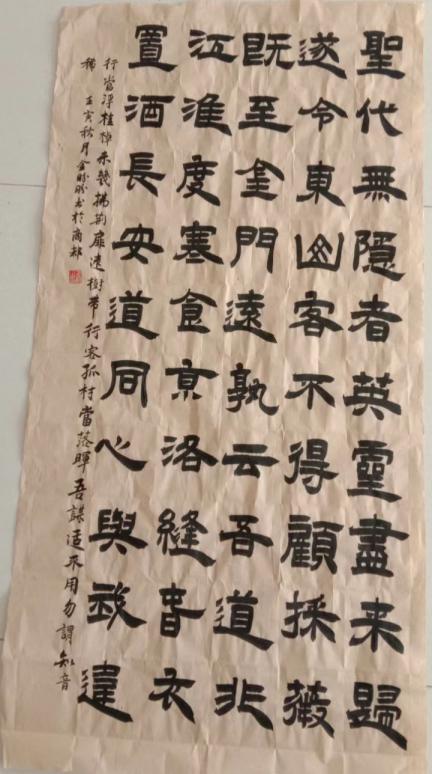 聖代無隱者英靈盡来歸
遂令東山客不得顧採薇
既至金門遠孰云吾道非
江淮度寒食京洛縫春衣
置酒長安道同心與我違
行當浮桂棹未幾拂荆扉遠樹帶行客孤村當落暉吾謀適不用勿謂知音
稀 壬寅秋月金盼盼书於商都